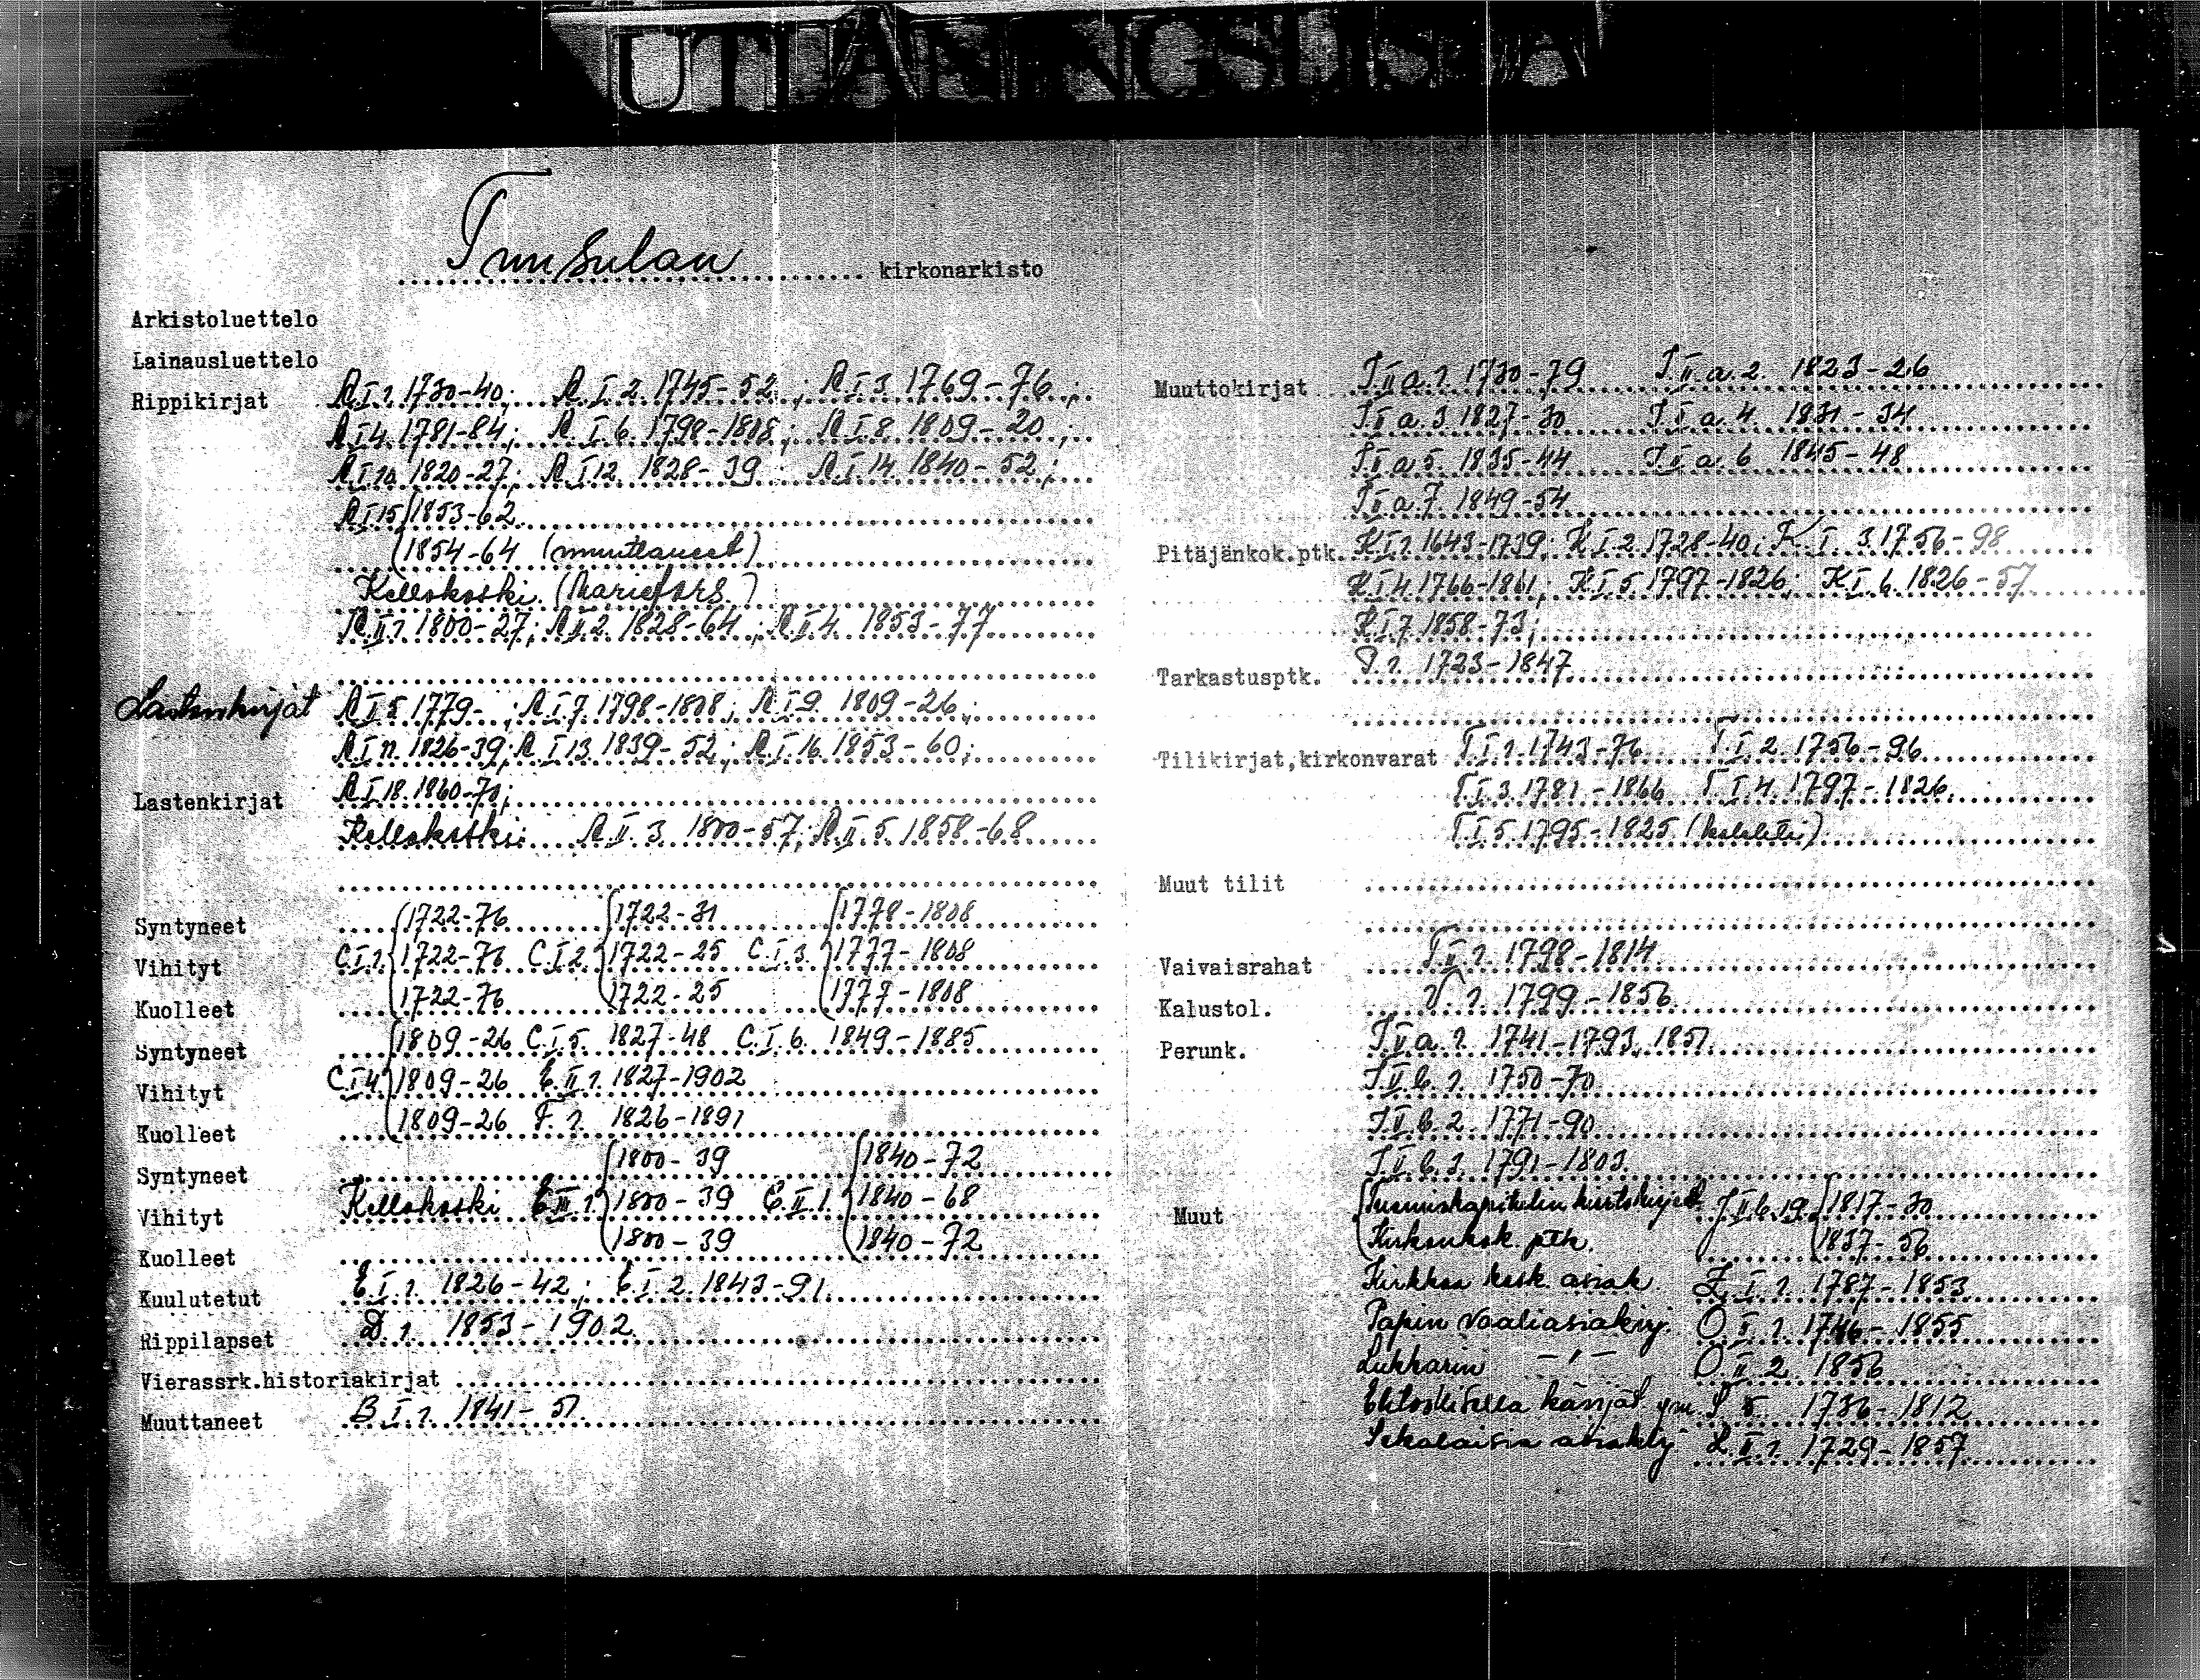 UTLÅNINGSLISTA
Tuusulan kirkonarkisto
Arkistoluettelo
Lainausluettelo
Rippikirjat A I 1 1730-40; A I 2 1745-52; A I 3 1769-76;
A I 4 1781-84; A I 6 1798-1808; A I 8 1809-20;
A I 10 1820-27; A I 12 1828-39; A I 14 1840-52;
A I 15 { 1853-62
1854-64 (muuttaneet)
Kellokoski (Mariefors)
A II 1 1800-27; A II 2 1828-64; A II 4 1853-77
Lastenkirjat A I 5 1779- ; A I 7 1798-1808; A I 9 1809-26;
A I 11 1826-39; A I 13 1839-52; A I 16 1853-60;
Lastenkirjat A I 18 1860-70;
Kellokoski: A II 3 1800-57; A II 5 1858-68
Syntyneet 1722-76 1722-31 1778-1808
Vihityt C I 1 { 1722-76 C I 2 { 1722-25 C I 3 { 1777-1808
Kuolleet 1722-76 1722-25 1777-1808
Syntyneet 1809-26 C I 5 1827-48 C I 6 1849-1885
Vihityt C I 4 { 1809-26 E II 1 1827-1902
Kuolleet 1809-26 F 1 1826-1891
Syntyneet 1800-39 1840-72
Vihityt Kellokoski 1800-39 C II 1 { 1840-68
Kuolleet 1800-39 1840-72
Kuulutetut E I 1 1826-42; E I 2 1843-91
Rippilapset D 1 1853-1902
Vierassrk.historiakirjat
Muuttaneet B I 1 1841-51
Muuttokirjat J II a 1 1730-79 J II a 2 1823-26
J II a 3 1827-30 J II a 4 1831-34
J II a 5 1835-44 J II a 6 1845-48
J II a 7 1849-54
Pitäjänkok.ptk. K I 1 1643-1739; K I 2 1728-40; K I 3 1756-98
K I 4 1766-1861; K I 5 1797-1826; K I 6 1826-57
K I 7 1858-73;
Tarkastusptk. P 1 1723-1847
Tilikirjat,kirkonvarat T I 1 1743-76 T I 2 1756-96
T I 3 1781-1866 T I 4 1797-1826
T I 5 1795-1825
Muut tilit
Vaivaisrahat T II 1 1798-1814
Kalustol. V 1 1799-1856
Perunk. J V a 1 1741-1793, 1851
J V b 1 1750-70
J V b 2 1771-90
J V b 3 1791-1803
Muut Tuomiokapitulin kiertokirjeet J I b 19 { 1817-30
Kirkonkok. ptk. 1837-56
Kirkkoa kosk. asiak. Z I 1 1787-1853
Papin vaaliasiakirj. O II 1 1746-1855
Lukkarin -"- O II 2 1856
Ehtoollisella käyvät ym. 1736-1812
Sekalaisia asiakirj 1729-1857